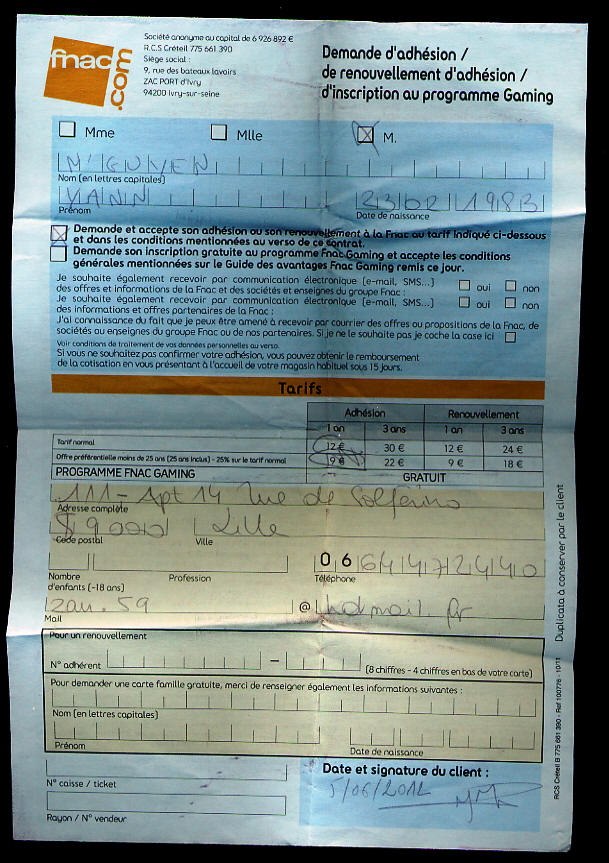 fnac.com
Société anonyme au capital de 6 926 892 €
R.C.S Créteil 775 661 390
Siège social :
9, rue des bateaux lavoirs
ZAC PORT d'Ivry
94200 Ivry-sur-seine
Demande d'adhésion /
de renouvellement d'adhésion /
d'inscription au programme Gaming
Mme Mlle M.
N'GUYEN
Nom (en lettres capitales)
YANN 23 02 1983
Prénom Date de naissance
Demande et accepte son adhésion ou son renouvellement à la Fnac au tarif indiqué ci-dessous
et dans les conditions mentionnées au verso de ce contrat.
Demande son inscription gratuite au programme Fnac Gaming et accepte les conditions
générales mentionnées sur le Guide des avantages Fnac Gaming remis ce jour.
Je souhaite également recevoir par communication électronique (e-mail, SMS...)
des offres et informations de la Fnac et des sociétés et enseignes du groupe Fnac : oui non
Je souhaite également recevoir par communication électronique (e-mail, SMS...)
des informations et offres partenaires de la Fnac : oui non
J'ai connaissance du fait que je peux être amené à recevoir par courrier des offres ou propositions de la Fnac, de
sociétés ou enseignes du groupe Fnac ou de nos partenaires. Si je ne le souhaite pas je coche la case ici
Voir conditions de traitement de vos données personnelles au verso.
Si vous ne souhaitez pas confirmer votre adhésion, vous pouvez obtenir le remboursement
de la cotisation en vous présentant à l'accueil de votre magasin habituel sous 15 jours.
Tarifs
Adhésion Renouvellement
1 an 3 ans 1 an 3 ans
Tarif normal 12 € 30 € 12 € 24 €
Offre préférentielle moins de 25 ans (25 ans inclus) - 25% sur le tarif normal 9 € 22 € 9 € 18 €
PROGRAMME FNAC GAMING GRATUIT
111 - Apt 14 rue de Solférino
Adresse complète
59000 Lille
Code postal Ville
06 64 47 24 40
Nombre
d'enfants (-18 ans) Profession Téléphone
@ hotmail.fr
Mail
Pour un renouvellement
N° adhérent - (8 chiffres - 4 chiffres en bas de votre carte)
Pour demander une carte famille gratuite, merci de renseigner également les informations suivantes :
Nom (en lettres capitales)
Prénom Date de naissance
N° caisse / ticket
Rayon / N° vendeur
Date et signature du client :
5/06/2012
RCS Créteil B 775 661 390 - Réf 100776 - 10/11 Duplicata à conserver par le client